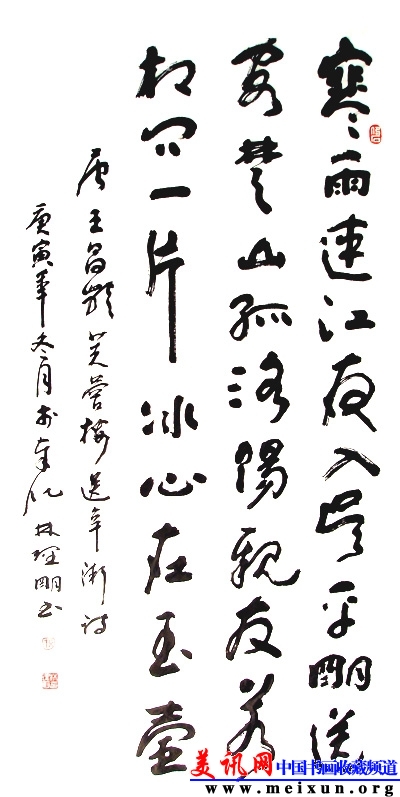 寒雨連江夜入吴平明送
客楚山孤洛陽親友若
相问一片冰心在玉壺
唐王昌齡芙蓉樓送辛渐诗
庚寅年冬月於 林 明书
美讯网 中国书画收藏频道
www.meixun.org